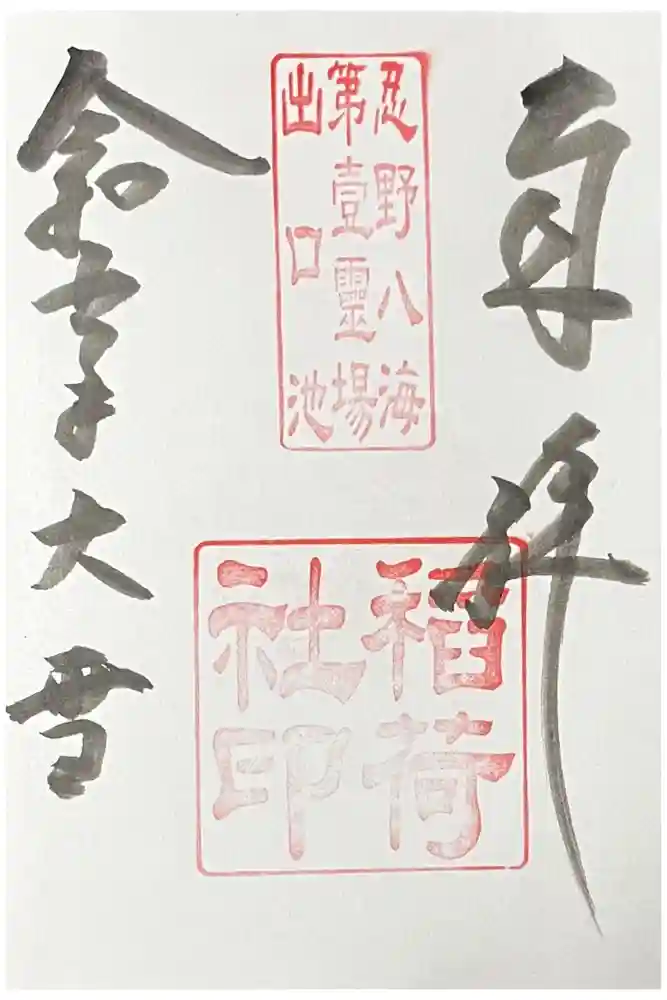 奉拝
忍野八海
第壹靈場
出口池
稲荷
社印
令和七年大雪